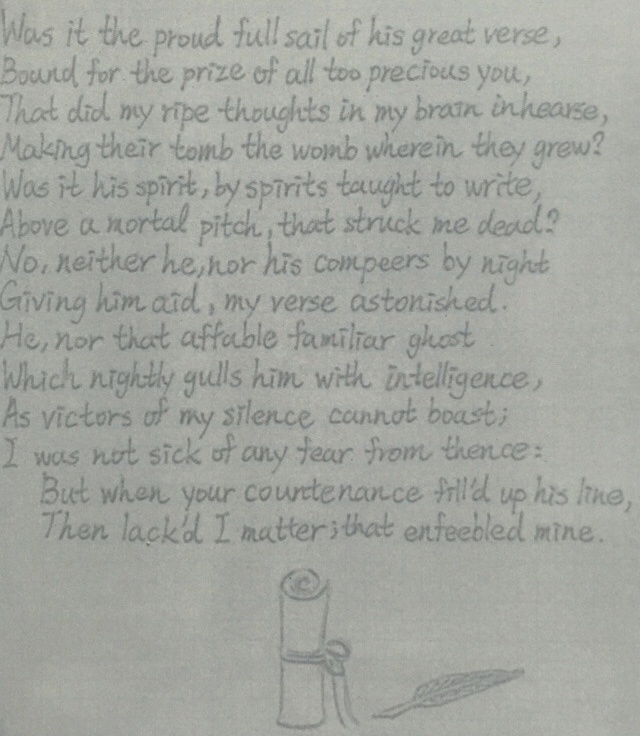 Was it the proud full sail of his great verse,
Bound for the prize of all too precious you,
That did my ripe thoughts in my brain inhearse,
Making their tomb the womb wherein they grew?
Was it his spirit, by spirits taught to write,
Above a mortal pitch, that struck me dead?
No, neither he, nor his compeers by night
Giving him aid, my verse astonished.
He, nor that affable familiar ghost
Which nightly gulls him with intelligence,
As victors of my silence cannot boast;
I was not sick of any fear from thence:
But when your countenance fill'd up his line,
Then lack'd I matter; that enfeebled mine.